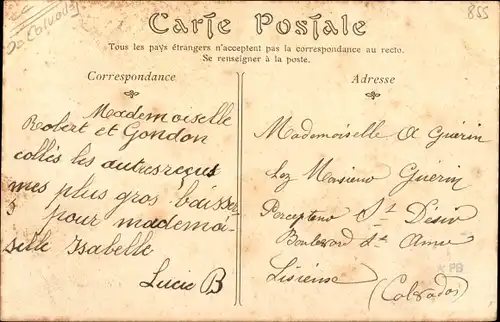 855
Do Calvados
Carte Postale
Tous les pays étrangers n'acceptent pas la correspondance au recto.
Se renseigner à la poste.
Correspondance
Mademoiselle
Robert et Gondon
collés les autres reçus
mes plus gros baisser
pour mademoi-
selle Isabelle
Lucie B
Adresse
Mademoiselle A Guérin
Monsieur Guérin
Percepteur St Désir
Boulevard Ste Anne
Lisieux
(Calvados)
PB